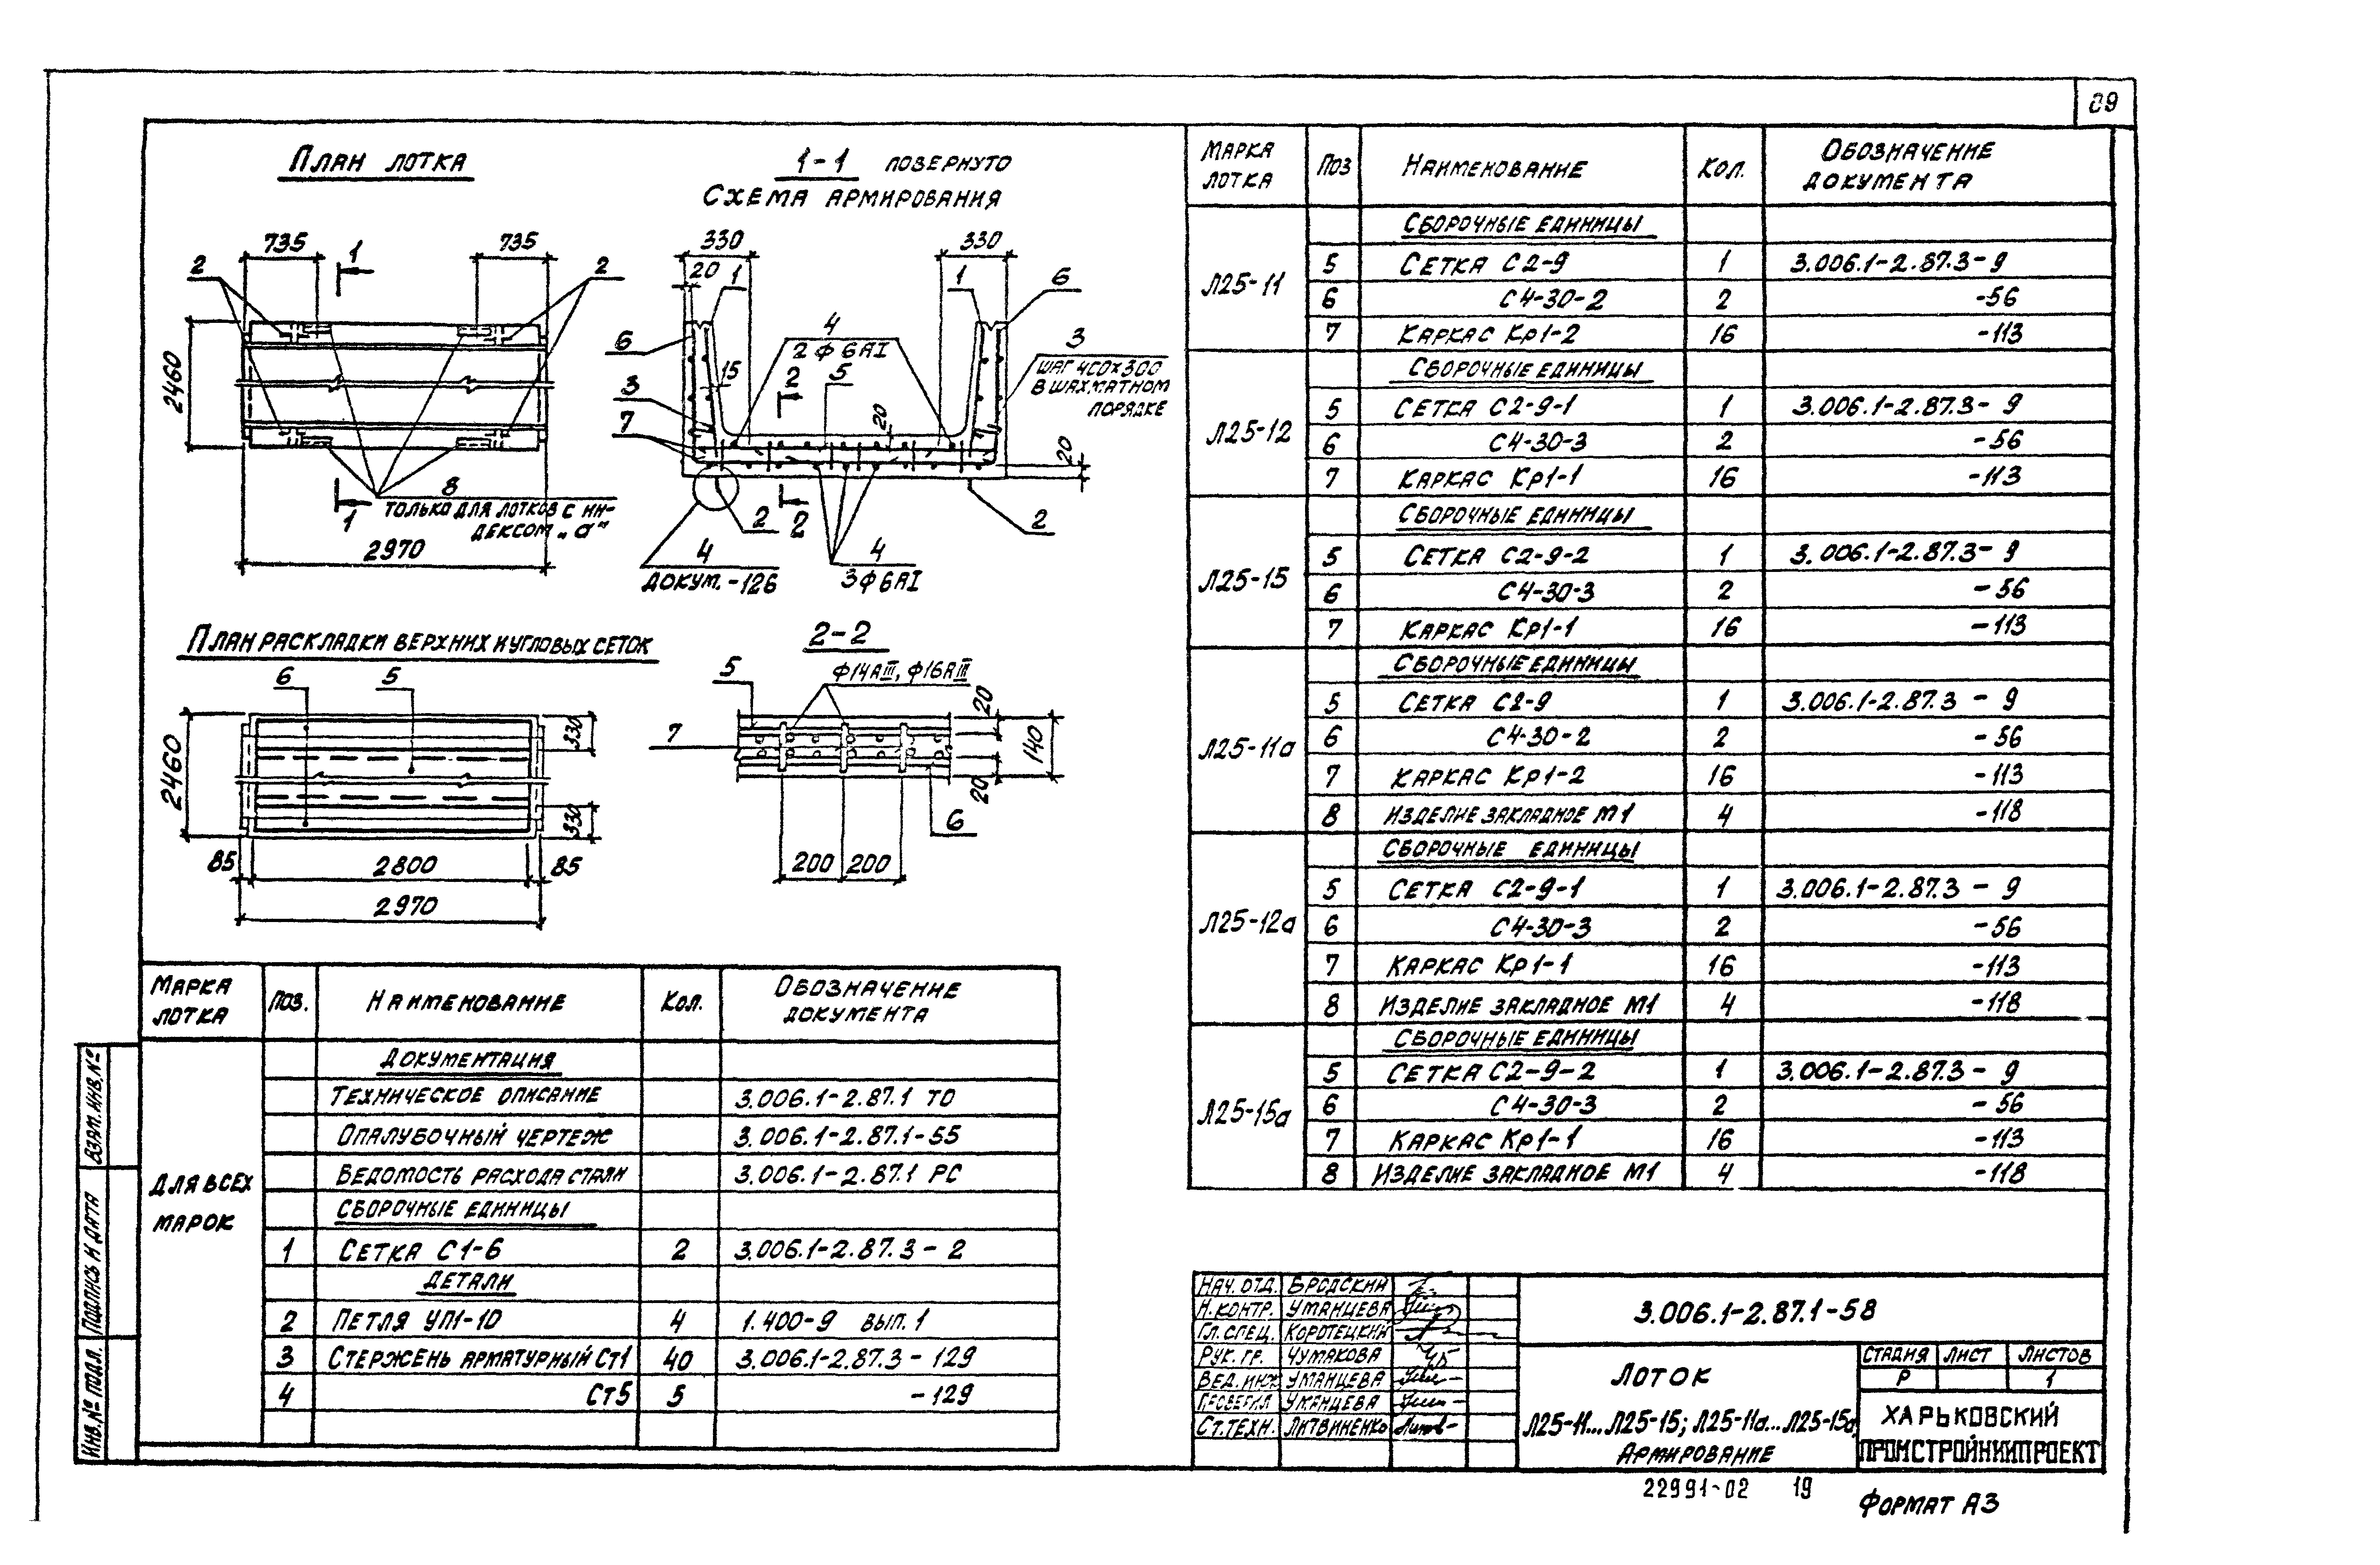 89
План лотка
735
735
1
2
2
2460
8
только для лотков с ин-
дексом „а"
1
2970
1-1 повернуто
Схема армирования
330
330
20
1
1
6
4
2ф6АI
6
3
шаг 400х300
в шахматном
порядке
15
2
5
3
7
20
20
2
2
2
4
докум. -126
4
3ф6АI
План раскладки верхних и угловых сеток
6
5
2460
330
330
85
2800
85
2970
2-2
5
ф14АIII, ф16АIII
20
7
140
20
6
200
200
Марка лотка Поз. Наименование Кол. Обозначение документа
Для всех марок
Документация
Техническое описание 3.006.1-2.87.1 ТО
Опалубочный чертеж 3.006.1-2.87.1-55
Ведомость расхода стали 3.006.1-2.87.1 РС
Сборочные единицы
1 Сетка С1-6 2 3.006.1-2.87.3-2
Детали
2 Петля УП1-10 4 1.400-9 вып. 1
3 Стержень арматурный Ст1 40 3.006.1-2.87.3-129
4 Ст5 5 -129
Марка лотка Поз Наименование Кол. Обозначение документа
Л25-11
Сборочные единицы
5 Сетка С2-9 1 3.006.1-2.87.3-9
6 С4-30-2 2 -56
7 Каркас Кр1-2 16 -113
Л25-12
Сборочные единицы
5 Сетка С2-9-1 1 3.006.1-2.87.3-9
6 С4-30-3 2 -56
7 Каркас Кр1-1 16 -113
Л25-15
Сборочные единицы
5 Сетка С2-9-2 1 3.006.1-2.87.3-9
6 С4-30-3 2 -56
7 Каркас Кр1-1 16 -113
Л25-11а
Сборочные единицы
5 Сетка С2-9 1 3.006.1-2.87.3-9
6 С4-30-2 2 -56
7 Каркас Кр1-2 16 -113
8 Изделие закладное М1 4 -118
Л25-12а
Сборочные единицы
5 Сетка С2-9-1 1 3.006.1-2.87.3-9
6 С4-30-3 2 -56
7 Каркас Кр1-1 16 -113
8 Изделие закладное М1 4 -118
Л25-15а
Сборочные единицы
5 Сетка С2-9-2 1 3.006.1-2.87.3-9
6 С4-30-3 2 -56
7 Каркас Кр1-1 16 -113
8 Изделие закладное М1 4 -118
Взам. инв. №
Подпись и дата
Инв. № подл.
Нач. отд. Бродский
Н. контр. Уманцева
Гл. спец. Коротецкий
Рук. гр. Чумакова
Вед. инж Уманцева
Проверил Уманцева
Ст. техн. Литвиненко
3.006.1-2.87.1-58
Лоток
Л25-11...Л25-15; Л25-11а...Л25-15а.
Армирование
Стадия Лист Листов
Р 1
Харьковский
Промстройниипроект
22991-02 19
Формат А3